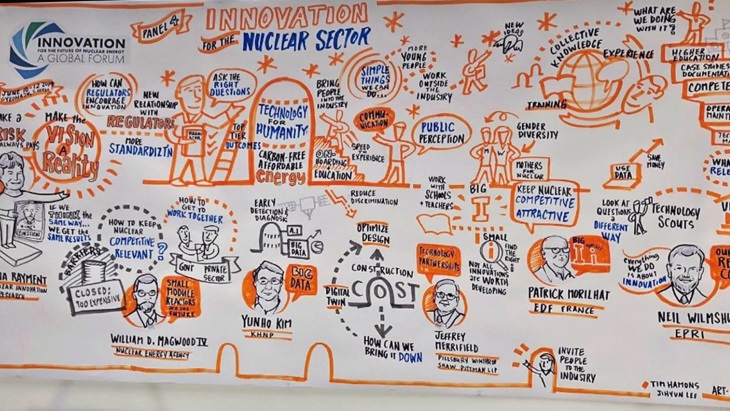 INNOVATION
FOR THE FUTURE OF NUCLEAR ENERGY
A GLOBAL FORUM
PANEL 4
INNOVATION
FOR THE
NUCLEAR SECTOR
HOW CAN
REGULATORS
ENCOURAGE
INNOVATION
NEW
RELATIONSHIP
WITH
REGULATORS
ASK THE
RIGHT
QUESTIONS
TOP
TIER
OUTCOMES
MORE
STANDARDIZTN
RISK
ALWAYS PAYS
MAKE the
VISION
A
Reality
TECHNOLOGY
FOR
HUMANITY
CARBON-FREE
AFFORDABLE
energy
BRING
PEOPLE
INTO the
INDUSTRY
ON
BOARDING
EDUCATION
SIMPLE
THINGS
WE CAN
DO...
COMMUNICATION
SPEED to
EXPERIENCE
MORE
YOUNG
PEOPLE
WORK
OUTSIDE
the
INDUSTRY
PUBLIC
PERCEPTION
NEW
IDEAS
COLLECTIVE
KNOWLEDGE
EXPERIENCE
TRAINING
GENDER
DIVERSITY
MOTHERS
FOR NUCLEAR
WHAT ARE WE
DOING
WITH IT?
HIGHER
EDUCATION
CASE STUDIES
COMPETE
USE
DATA
SAVE
MONEY
IF WE
THINK the
SAME WAY,
WE GET the
SAME RESULTS
HOW TO KEEP
NUCLEAR
COMPETITIVE
RELEVANT ?
BARRIERS
CLOSED:
TOO EXPENSIVE
HOW TO
GET to
WORK TOGETHER
GOVT
PRIVATE
SECTOR
EARLY
DETECTION &
DIAGNOSIS
A.I
BIG
DATA
REDUCE
DISCRIMINATION
OPTIMIZE
DESIGN
CONSTRUCTION
COST
DIGITAL
TWIN
HOW CAN WE
BRING IT DOWN
WORK
WITH
SCHOOLS
TEACHERS
BIG
I
SMALL
i
FIND
THE
RIGHT
NOT ALL
INNOVATIONS
are WORTH
DEVELOPING
KEEP NUCLEAR
COMPETITIVE
ATTRACTIVE
LOOK AT
QUESTIONS
a
DIFFERENT
WAY
TECHNOLOGY
SCOUTS
TECHNOLOGY
PARTNERSHIPS
SMALL
MODULAR
REACTORS
are the FUTURE
BIG
DATA
everything
WE DO
IS ABOUT
INNOVATION
RAYMENT
WILLIAM D. MAGWOOD IV
NUCLEAR ENERGY AGENCY
YUNHO KIM
KHNP
JEFFREY
MERRIFIELD
PILLSBURY WINTHROP
SHAW PITTMAN LLP
PATRICK MORILHAT
EDF FRANCE
NEIL WILMSHU
EPRI
INVITE
PEOPLE
TO the
INDUSTRY
TIM HAMONS
JIHYUN LEE
ART-